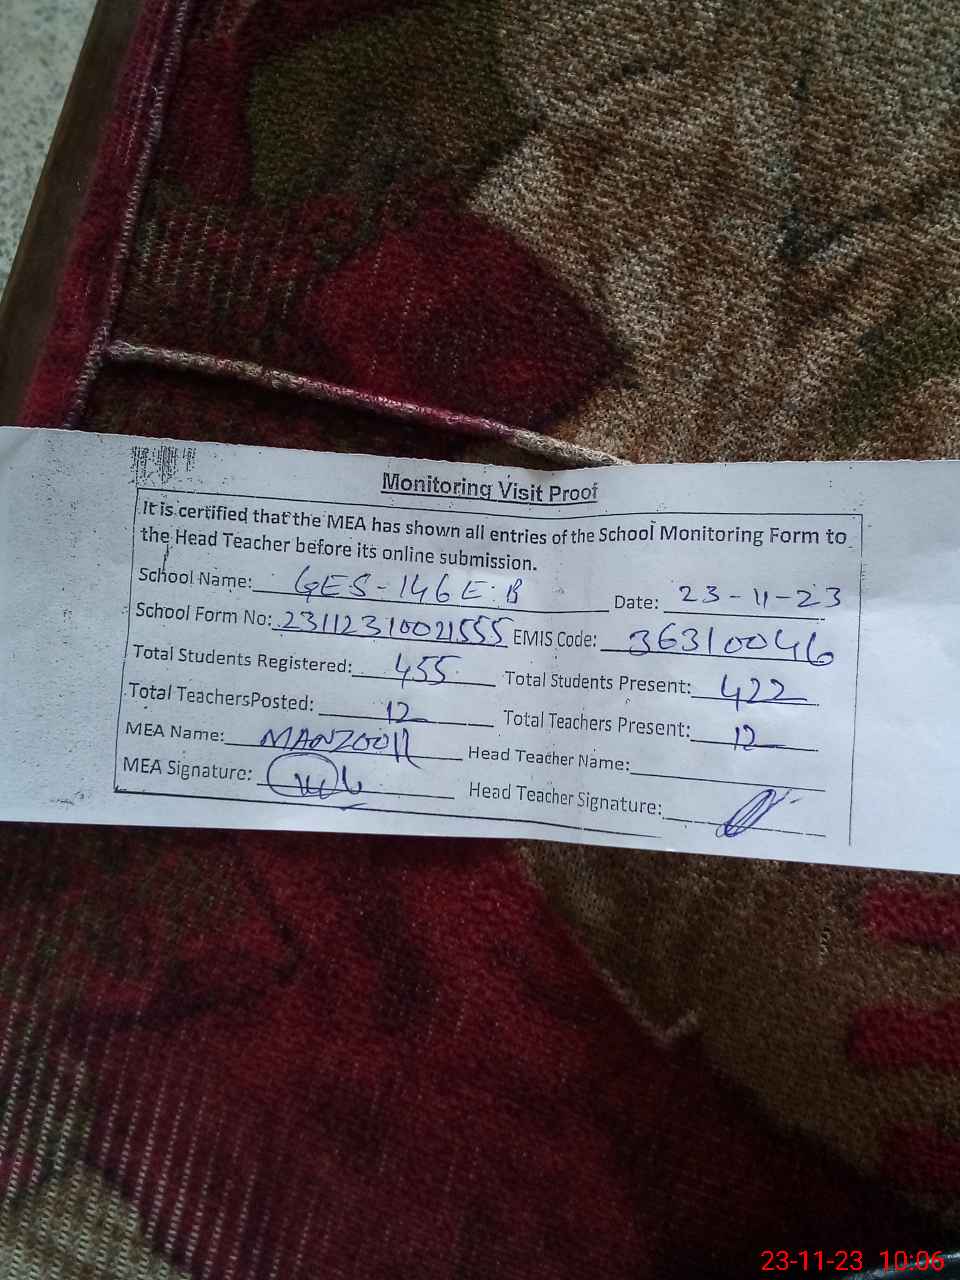 Monitoring Visit Proof
It is certified that the MEA has shown all entries of the School Monitoring Form to
the Head Teacher before its online submission.
School Name: GES-146 E.B Date: 23-11-23
School Form No: 23112310021555 EMIS Code: 36310046
Total Students Registered: 455 Total Students Present: 422
Total TeachersPosted: 12 Total Teachers Present: 12
MEA Name: MANZOOR Head Teacher Name:
MEA Signature: Head Teacher Signature:
23-11-23 10:06